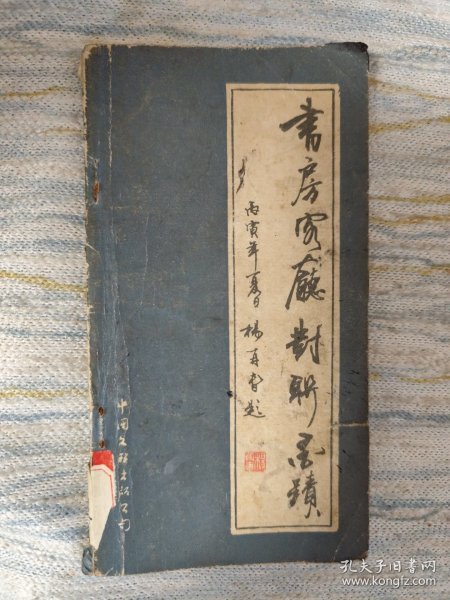 書房客廳對联墨蹟
丙寅年夏日楊再春题
中国文联出版公司
孔夫子旧书网
www.kongfz.com